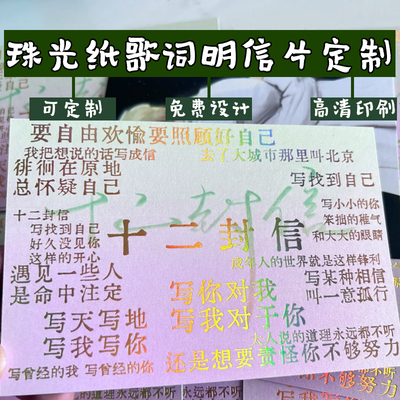 珠光纸歌词明信片定制
可定制 免费设计 高清印刷
要自由欢愉要照顾好自己
我把想说的话写成信 去了大城市那里叫北京
徘徊在原地
总怀疑自己
写找到自己
十二封信
写小小的你
笨拙的稚气
和大大的眼睛
十二封信
写找到自己
好久没见你
这样的开心
十二封信
成年人的世界就是这样锋利
遇见一些人
是命中注定
写你对我
写某种相信
叫一意孤行
写天写地
写我写你
写我对于你
大人说的道理永远都不听
还是想要责怪你不够努力
写曾经的我 写曾经的你
的道理永远都不听